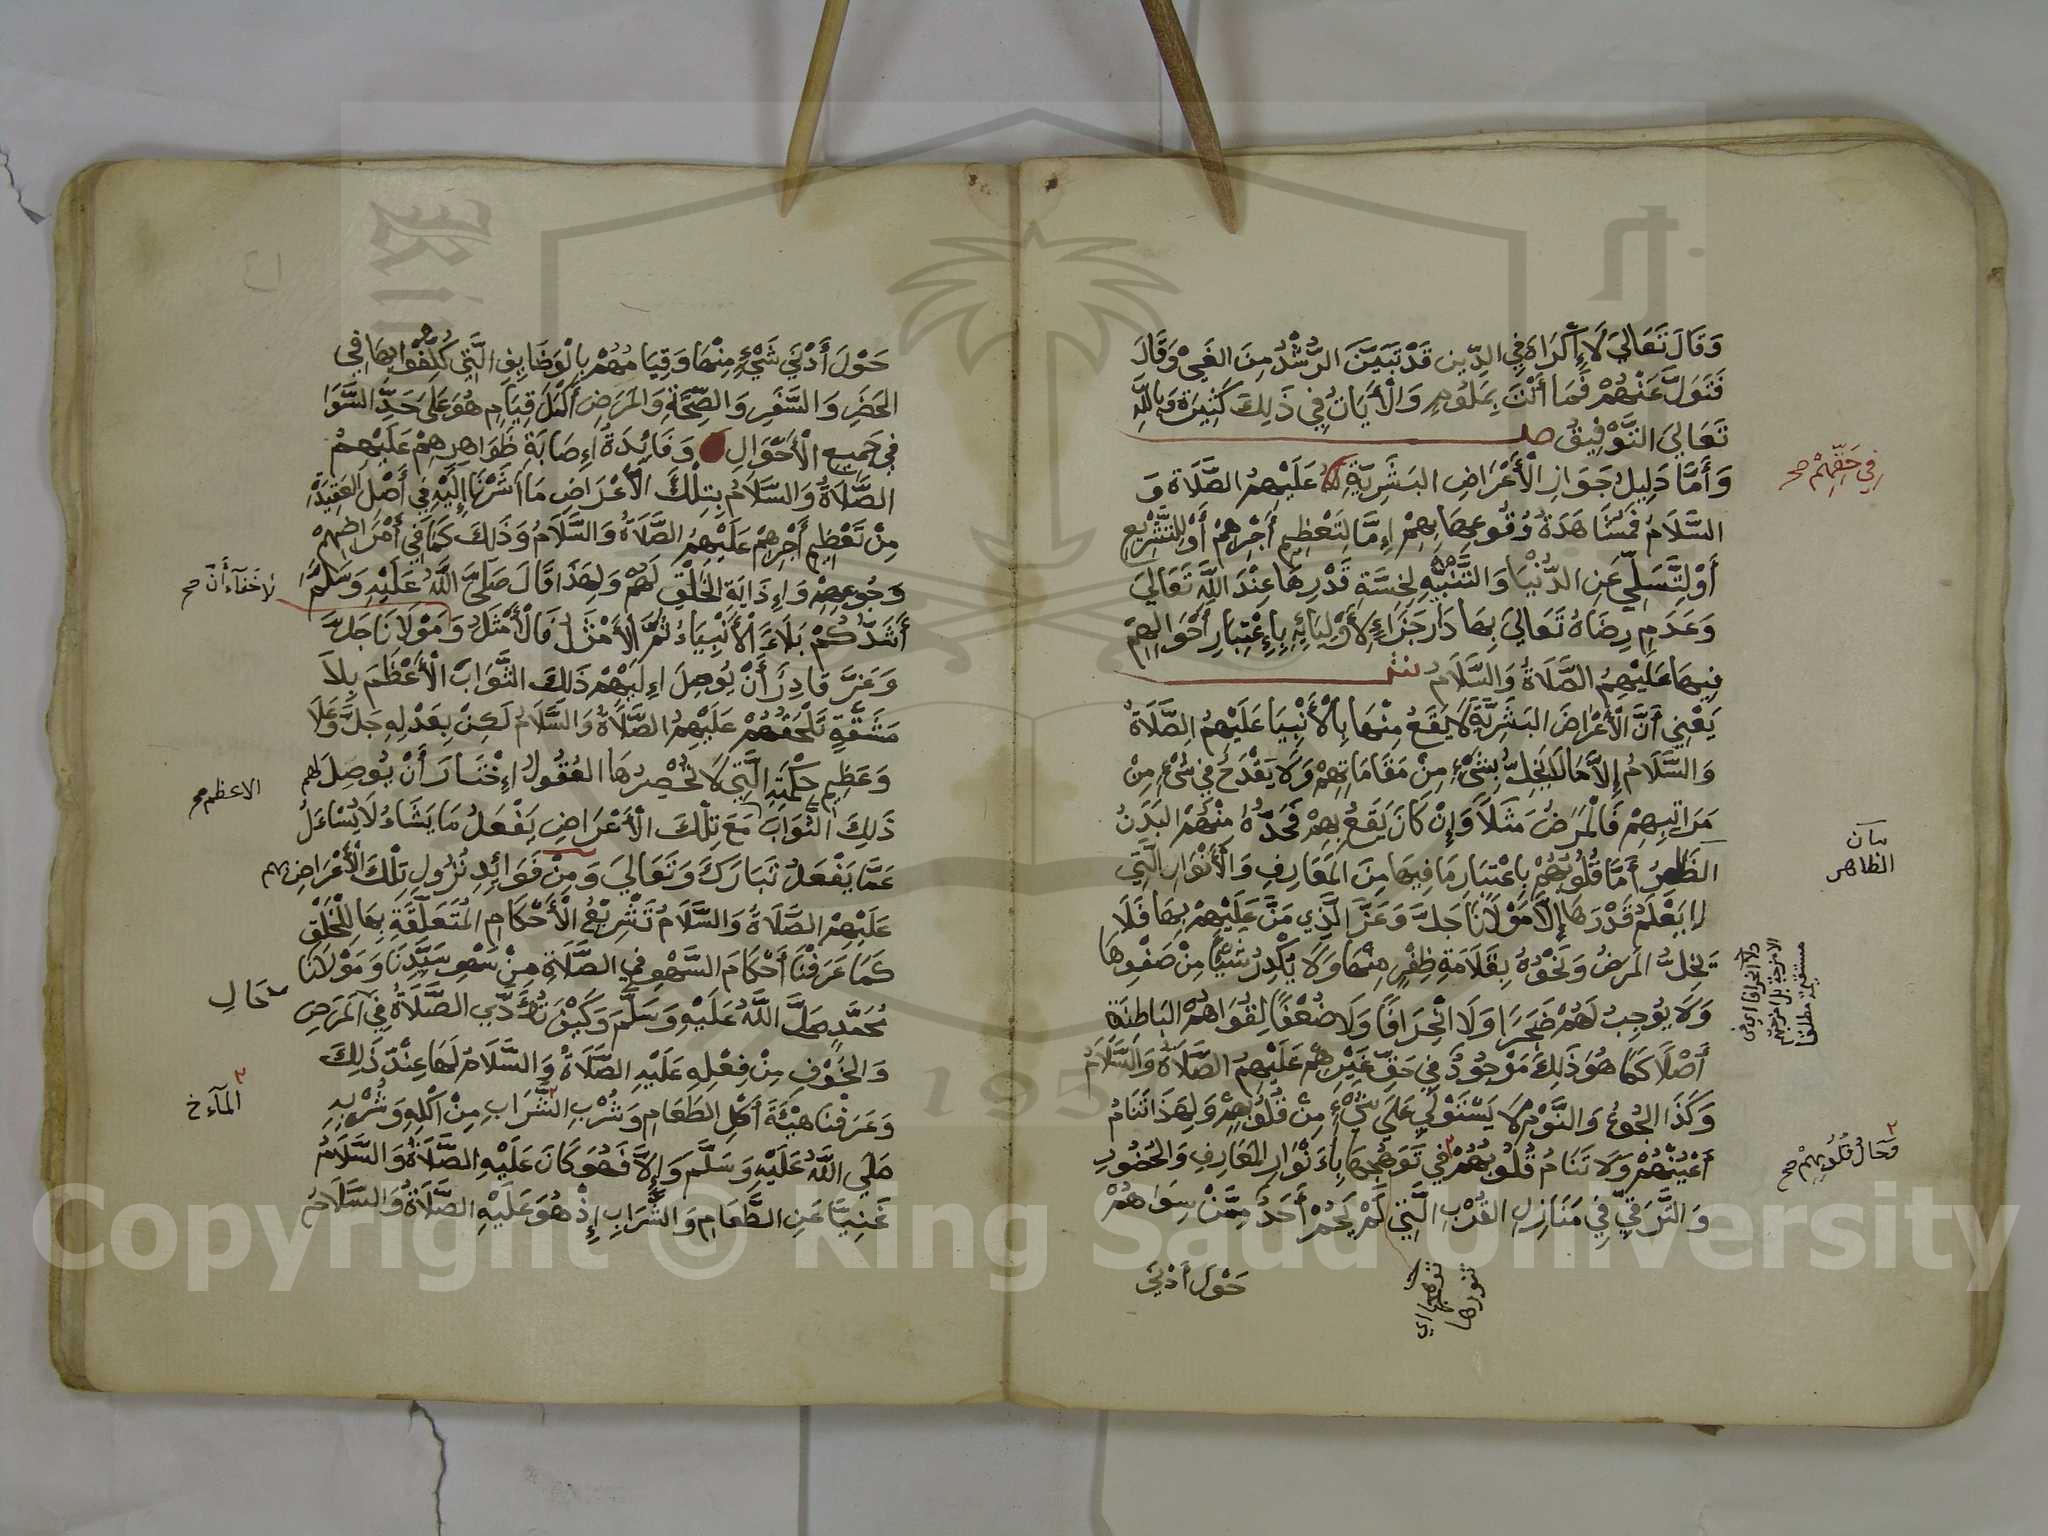 وَقَالَ تَعَالَى لَا إِكْرَاهَ فِي الدِّينِ قَدْ تَبَيَّنَ الرُّشْدُ مِنَ الغَيِّ وَقَالَ
فَتَوَلَّ عَنْهُمْ فَمَا أَنْتَ بِمَلُومٍ وَالْأَيَاتُ فِي ذَلِكَ كَثِيرَةٌ وَبِاللَّهِ
تَعَالَى التَّوْفِيقُ ص
وَأَمَّا دَلِيلُ جَوَازِ الْأَعْرَاضِ البَشَرِيَّةِ عَلَيْهِمُ الصَّلَاةُ وَ
السَّلَامُ فَمُشَاهَدَةُ وُقُوعِهَا بِهِمْ إِمَّا لِتَعْظِيمِ أَجْرِهِمْ أَوْ لِلتَّشْرِيعِ
أَوْ لِتَّسَلِّي عَنِ الدُّنْيَا وَالتَّنْبِيْهِ لِخِسَّةِ قَدْرِهَا عِنْدَ اللَّهِ تَعَالَى
وَعَدَمِ رِضَاهُ تَعَالَى بِهَا دَارَ جَزَاءٍ لِأَوْلِيَائِهِ بِإِعْتِبَارِ أَحْوَالِهِمْ
فِيهَا عَلَيْهِمُ الصَّلَاةُ وَالسَّلَامُ ش
يَعْنِي أَنَّ الْأَعْرَاضَ البَشَرِيَّةَ لَا يَقَعُ مِنْهَا بِالْأَنْبِيَا عَلَيْهِمُ الصَّلَاةُ
وَالسَّلَامُ إِلَّا مَا لَا يُخِلُّ بِشَيْءٍ مِنْ مَقَامَاتِهِمْ وَلَا يَقْدَحُ فِي شَيْءٍ مِنْ
مَرَاتِبِهِمْ فَالْمَرَضُ مَثَلًا وَإِنْ كَانَ يَقَعُ بِهِمْ فَحَدُّهُ مِنْهُمُ البَدَنُ
الظَّاهِرُ أَمَّا قُلُوبُهُمْ بِاعْتِبَارِ مَا فِيهَا مِنَ المَعَارِفِ وَالْأَنْوَارِ الَّتِي
لَا يَعْلَمُ قَدْرَهَا إِلَّا مَوْلَانَا جَلَّ وَعَزَّ الَّذِي مَنَّ عَلَيْهِمْ بِهَا فَلَا
يُخِلُّ المَرَضُ وَنَحْوُهُ بِقَلَامَةِ ظِفْرٍ مِنْهَا وَلَا يُكَدِّرُ شَيْئًا مِنْ صَفْوِهَا
وَلَا يُوجِبُ لَهُمْ ضَجَرًا وَلَا انْحِرَافًا وَلَا ضُعْفًا لِقُوَاهُمُ البَاطِنَةِ
أَصْلًا كَمَا هُوَ ذَلِكَ مَوْجُودٌ فِي حَقِّ غَيْرِهِمْ عَلَيْهِمُ الصَّلَاةُ وَالسَّلَامُ
وَكَذَا الجُوعُ وَالنَّوْمُ لَا يَسْتَوْلِي عَلَى شَيْءٍ مِنْ قُلُوبِهِمْ وَلِهَذَا تَنَامُ
أَعْيُنُهُمْ وَلَا تَنَامُ قُلُوبُهُمْ فِي تَوَهُّجِهَا بِأَنْوَارِ المَعَارِفِ وَالحُضُورِ
وَالتَّرَقِّي فِي مَنَازِلِ القُرْبِ الَّتِي لَمْ يَحُمْ أَحَدٌ مِمَّنْ سِوَاهُمْ
حَوْلَ أَدْنَى
فِي حَقِّهِمْ صح
بيان
الظاهر
وَحَالُ قُلُوبِهِمْ صح
حَوْلَ أَدْنَى شَيْءٍ مِنْهَا وَقِيَامُهُمْ بِالْوَظَايِفِ الَّتِي كُلِّفُوا بِهَا فِي
الحَضَرِ وَالسَّفَرِ وَالصِّحَّةِ وَالمَرَضِ أَكْمَلَ قِيَامٍ هُوَ عَلَى حَدِّ السَّوَا
فِي جَمِيعِ الْأَحْوَالِ وَفَائِدَةُ إِصَابَةِ ظَوَاهِرِهِمْ عَلَيْهِمُ
الصَّلَاةُ وَالسَّلَامُ بِتِلْكَ الْأَعْرَاضِ مَا أَشَرْنَا إِلَيْهِ فِي أَصْلِ العَقِيدَةِ
مِنْ تَعْظِيمِ أَجْرِهِمْ عَلَيْهِمُ الصَّلَاةُ وَالسَّلَامُ وَذَلِكَ كَمَا فِي أَمْرَاضِهِمْ
وَجُوعِهِمْ وَإِذَايَةِ الخَلْقِ لَهُمْ وَلِهَذَا قَالَ صَلَّى اللَّهُ عَلَيْهِ وَسَلَّمَ
أَشَدُّكُمْ بَلَاءً الْأَنْبِيَاءُ ثُمَّ الْأَمْثَلُ فَالْأَمْثَلُ وَمَوْلَانَا جَلَّ
وَعَزَّ قَادِرٌ أَنْ يُوصِلَ إِلَيْهِمْ ذَلِكَ الثَّوَابَ الْأَعْظَمَ بِلَا
مَشَقَّةٍ تَلْحَقُهُمْ عَلَيْهِمُ الصَّلَاةُ وَالسَّلَامُ لَكِنْ بِعَدْلِهِ جَلَّ وَعَلَا
وَعَظِيمِ حِكْمَتِهِ الَّتِي لَا تُحْصِرُهَا العُقُولُ اخْتَارَ أَنْ يُوصِلَ لهم
ذَلِكَ الثَّوَابَ مَعَ تِلْكَ الْأَعْرَاضِ يَفْعَلُ مَا يَشَاءُ لَا يُسْاءَلُ
عَمَّا يَفْعَلُ تَبَارَكَ وَتَعَالَى وَمِنْ فَوَائِدِ نُزُولِ تِلْكَ الْأَعْرَاضِ بهم
عَلَيْهِمُ الصَّلَاةُ وَالسَّلَامُ تَشْرِيعُ الْأَحْكَامِ المُتَعَلِّقَةِ بِهَا لِلْخَلْقِ
كَمَا عَرَفْنَا أَحْكَامَ السَّهْوِ فِي الصَّلَاةِ مِنْ سَهْوِ سَيِّدِنَا وَمَوْلَانَا
مُحَمَّدٍ صَلَّى اللَّهُ عَلَيْهِ وَسَلَّمَ وَكَيْفَ تُؤَدَّى الصَّلَاةُ فِي المَرَضِ
وَالخَوْفِ مِنْ فِعْلِهِ عَلَيْهِ الصَّلَاةُ وَالسَّلَامُ لَهَا عِنْدَ ذَلِكَ
وَعَرَفْنَا هَيْئَةَ أَكْلِ الطَعَامِ وَشُرْبِ الشَّرَابِ مِنْ أَكْلِهِ وَشُرْبِهِ
صَلَّى اللَّهُ عَلَيْهِ وَسَلَّمَ وَإِلَّا فَهُوَ كَانَ عَلَيْهِ الصَّلَاةُ وَالسَّلَامُ
غَنِيًّا عَنِ الطَّعَامِ وَالشَّرَابِ إِذْ هُوَ عَلَيْهِ الصَّلَاةُ وَالسَّلَامُ
لَا خَفَاءَ أَنَّ صح
الاعظم صح
حَالِ
المآء خ
Copyright © King Saud University
195